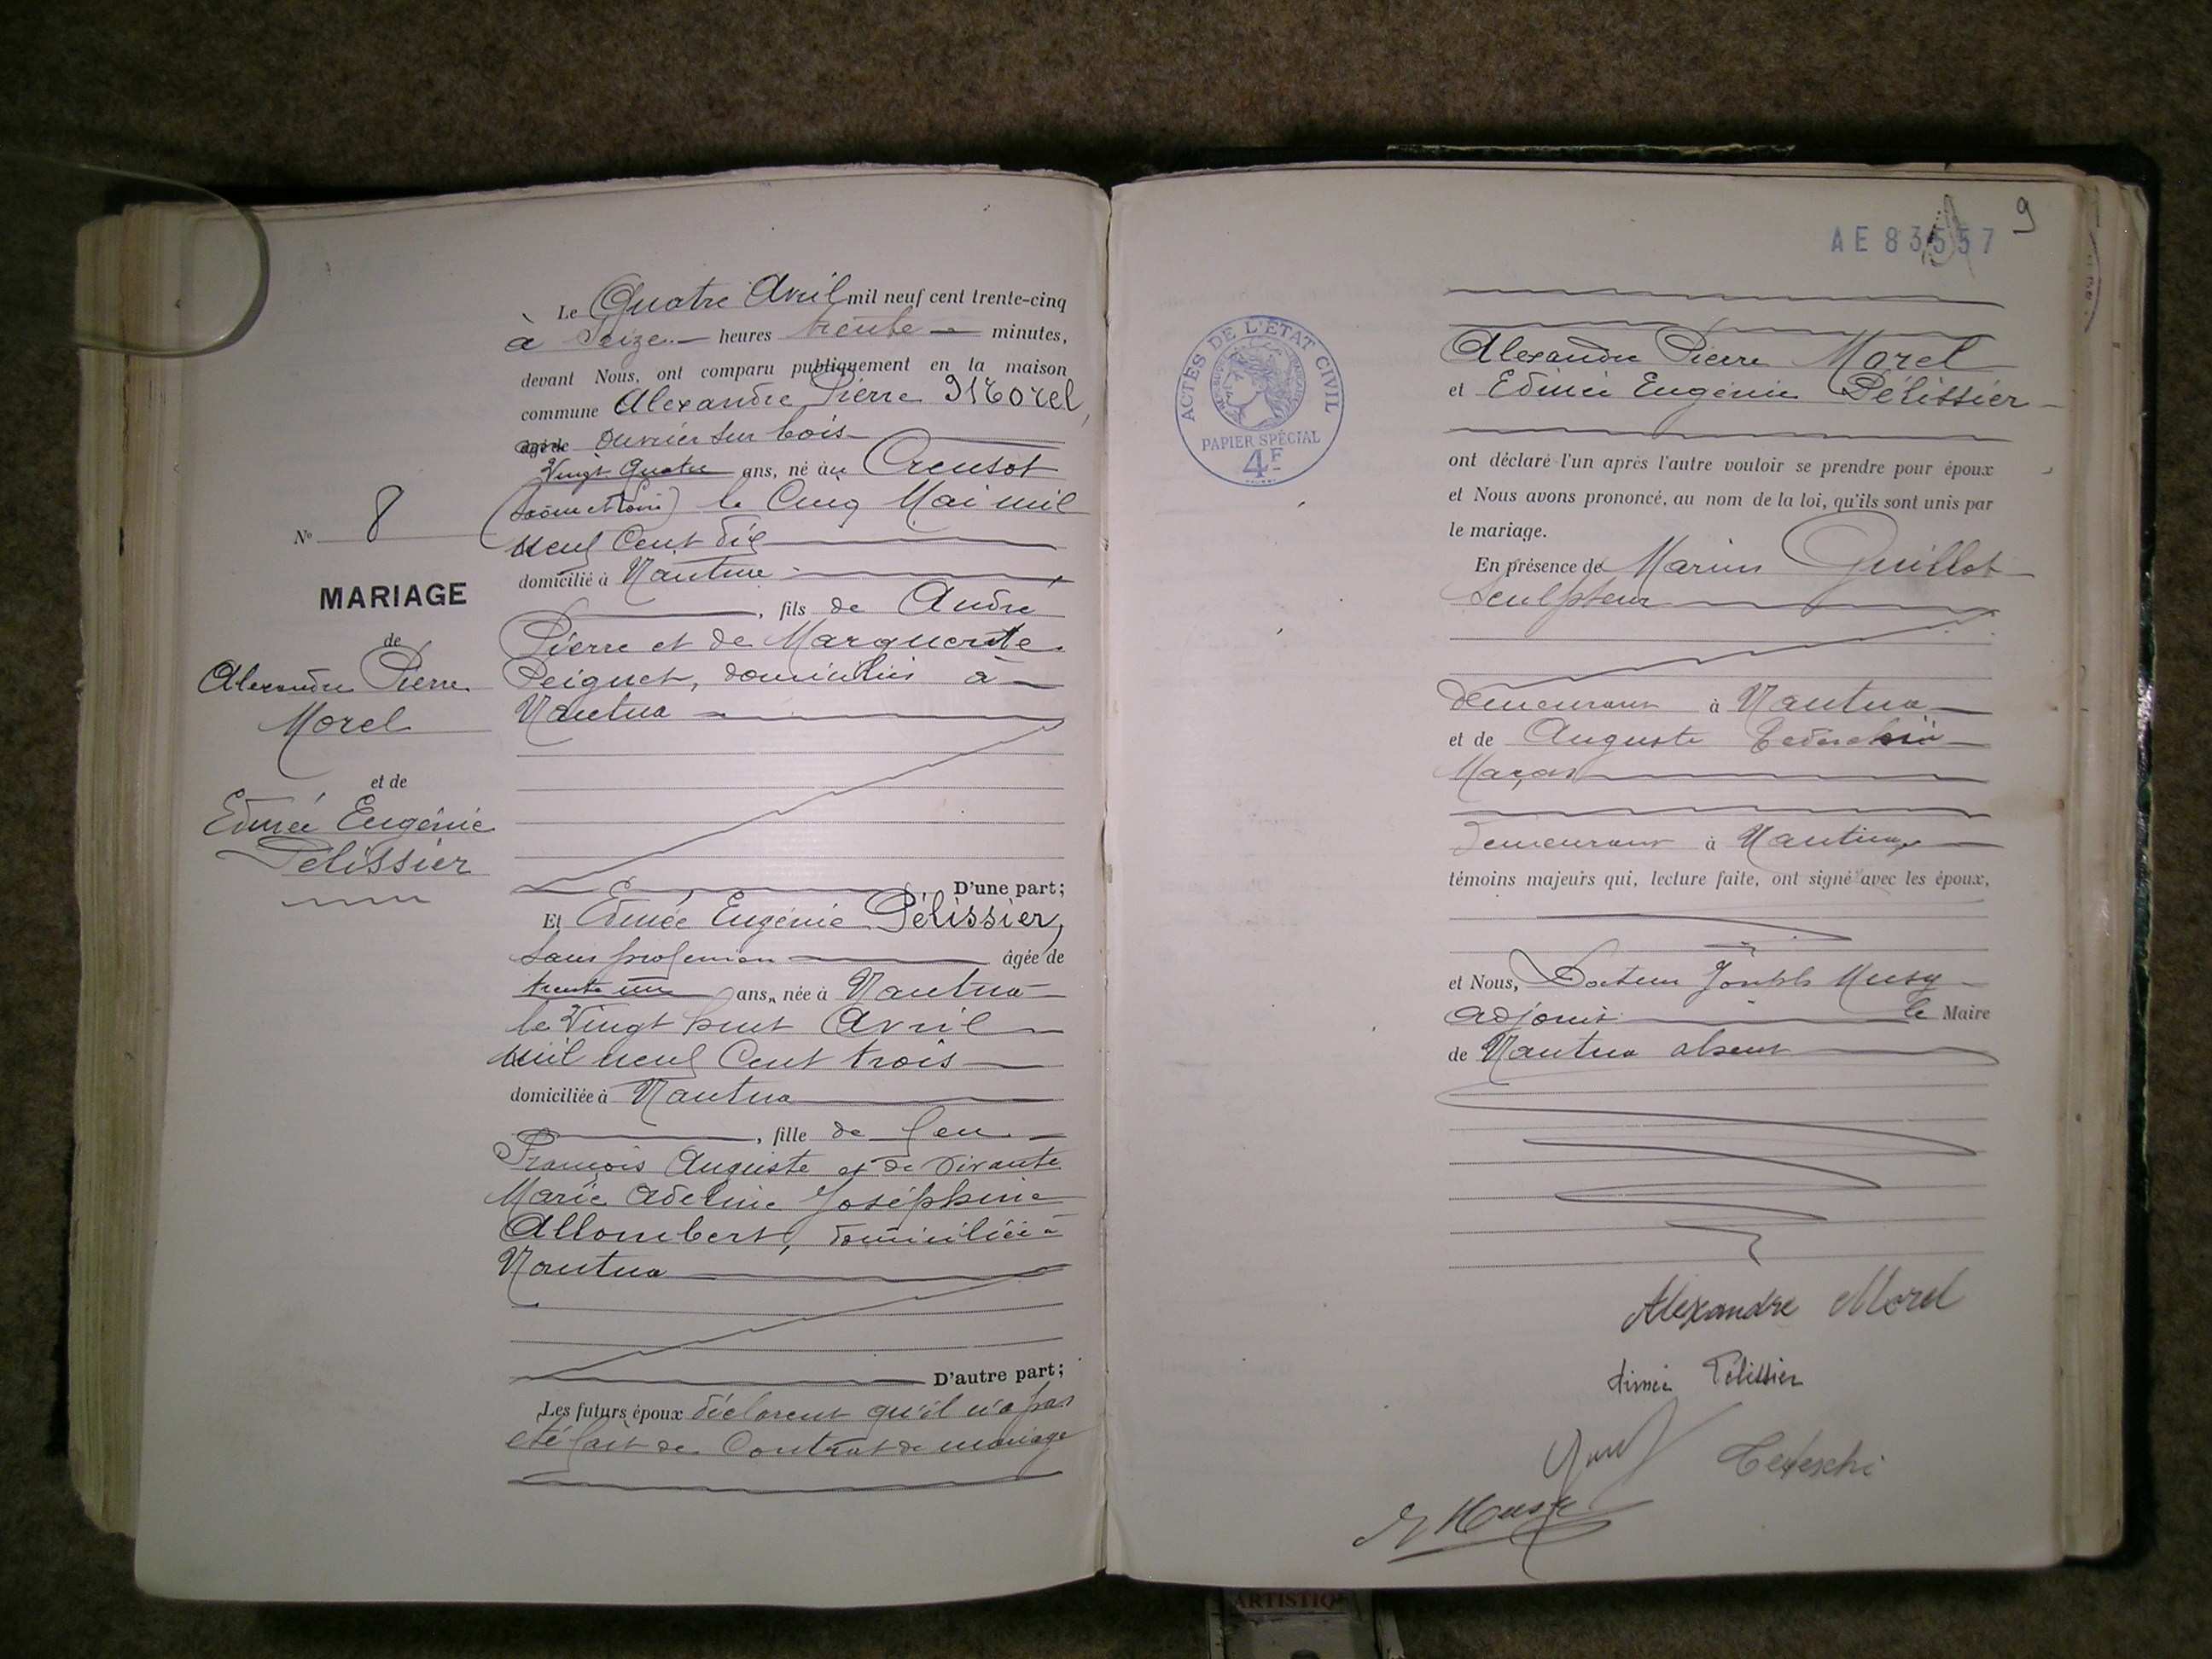 N° 8
MARIAGE
de
Alexandre Pierre
Morel
et de
Edmée Eugénie
Pélissier
Le Quatre Avril mil neuf cent trente-cinq
à Seize heures trente minutes,
devant Nous, ont comparu publiquement en la maison
commune Alexandre Pierre Morel,
ouvrier sur bois
Vingt quatre ans, né au Creusot
(Saône et Loire) le Cinq Mai mil
neuf Cent dix
domicilié à Nantua
, fils de André
Pierre et de Marguerite
Peignet, domiciliés à
Nantua
D'une part;
Et Edmée Eugénie Pélissier,
Sans profession âgée de
trente un ans, née à Nantua
le Vingt huit Avril
mil neuf Cent trois
domiciliée à Nantua
, fille de feu
François Auguste et de vivante
Marie Adeline Joséphine
Allombert, domiciliée à
Nantua
D'autre part;
Les futurs époux déclarent qu'il n'a pas
été fait de Contrat de mariage
9
AE 83557
ACTES DE L'ÉTAT CIVIL
PAPIER SPÉCIAL
4F
Alexandre Pierre Morel
et Edmée Eugénie Pélissier
ont déclaré l'un après l'autre vouloir se prendre pour époux
et Nous avons prononcé, au nom de la loi, qu'ils sont unis par
le mariage.
En présence de Marius Guillot
Sculpteur
demeurant à Nantua
et de Auguste Tedeschi
Maçon
demeurant à Nantua
témoins majeurs qui, lecture faite, ont signé avec les époux,
et Nous, Docteur Joseph Musy
adjoint le Maire
de Nantua absent
Alexandre Morel
Aimée Pélissier
Tedeschi
Musy
ARTISTIQ